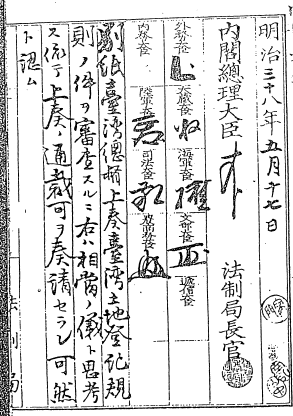 明治三十八年五月十七日
内閣總理大臣
法制局長官
外務大臣
大藏大臣
海軍大臣
文部大臣
遞信大臣
内務大臣
陸軍大臣
司法大臣
農商務大臣
別紙臺灣總督上奏臺灣土地登記規
則ノ件ヲ審査スルニ右ハ相當ノ儀ト思考
ス依テ上奏ノ通裁可ヲ奏請セラレ可然
ト認ム
法制局